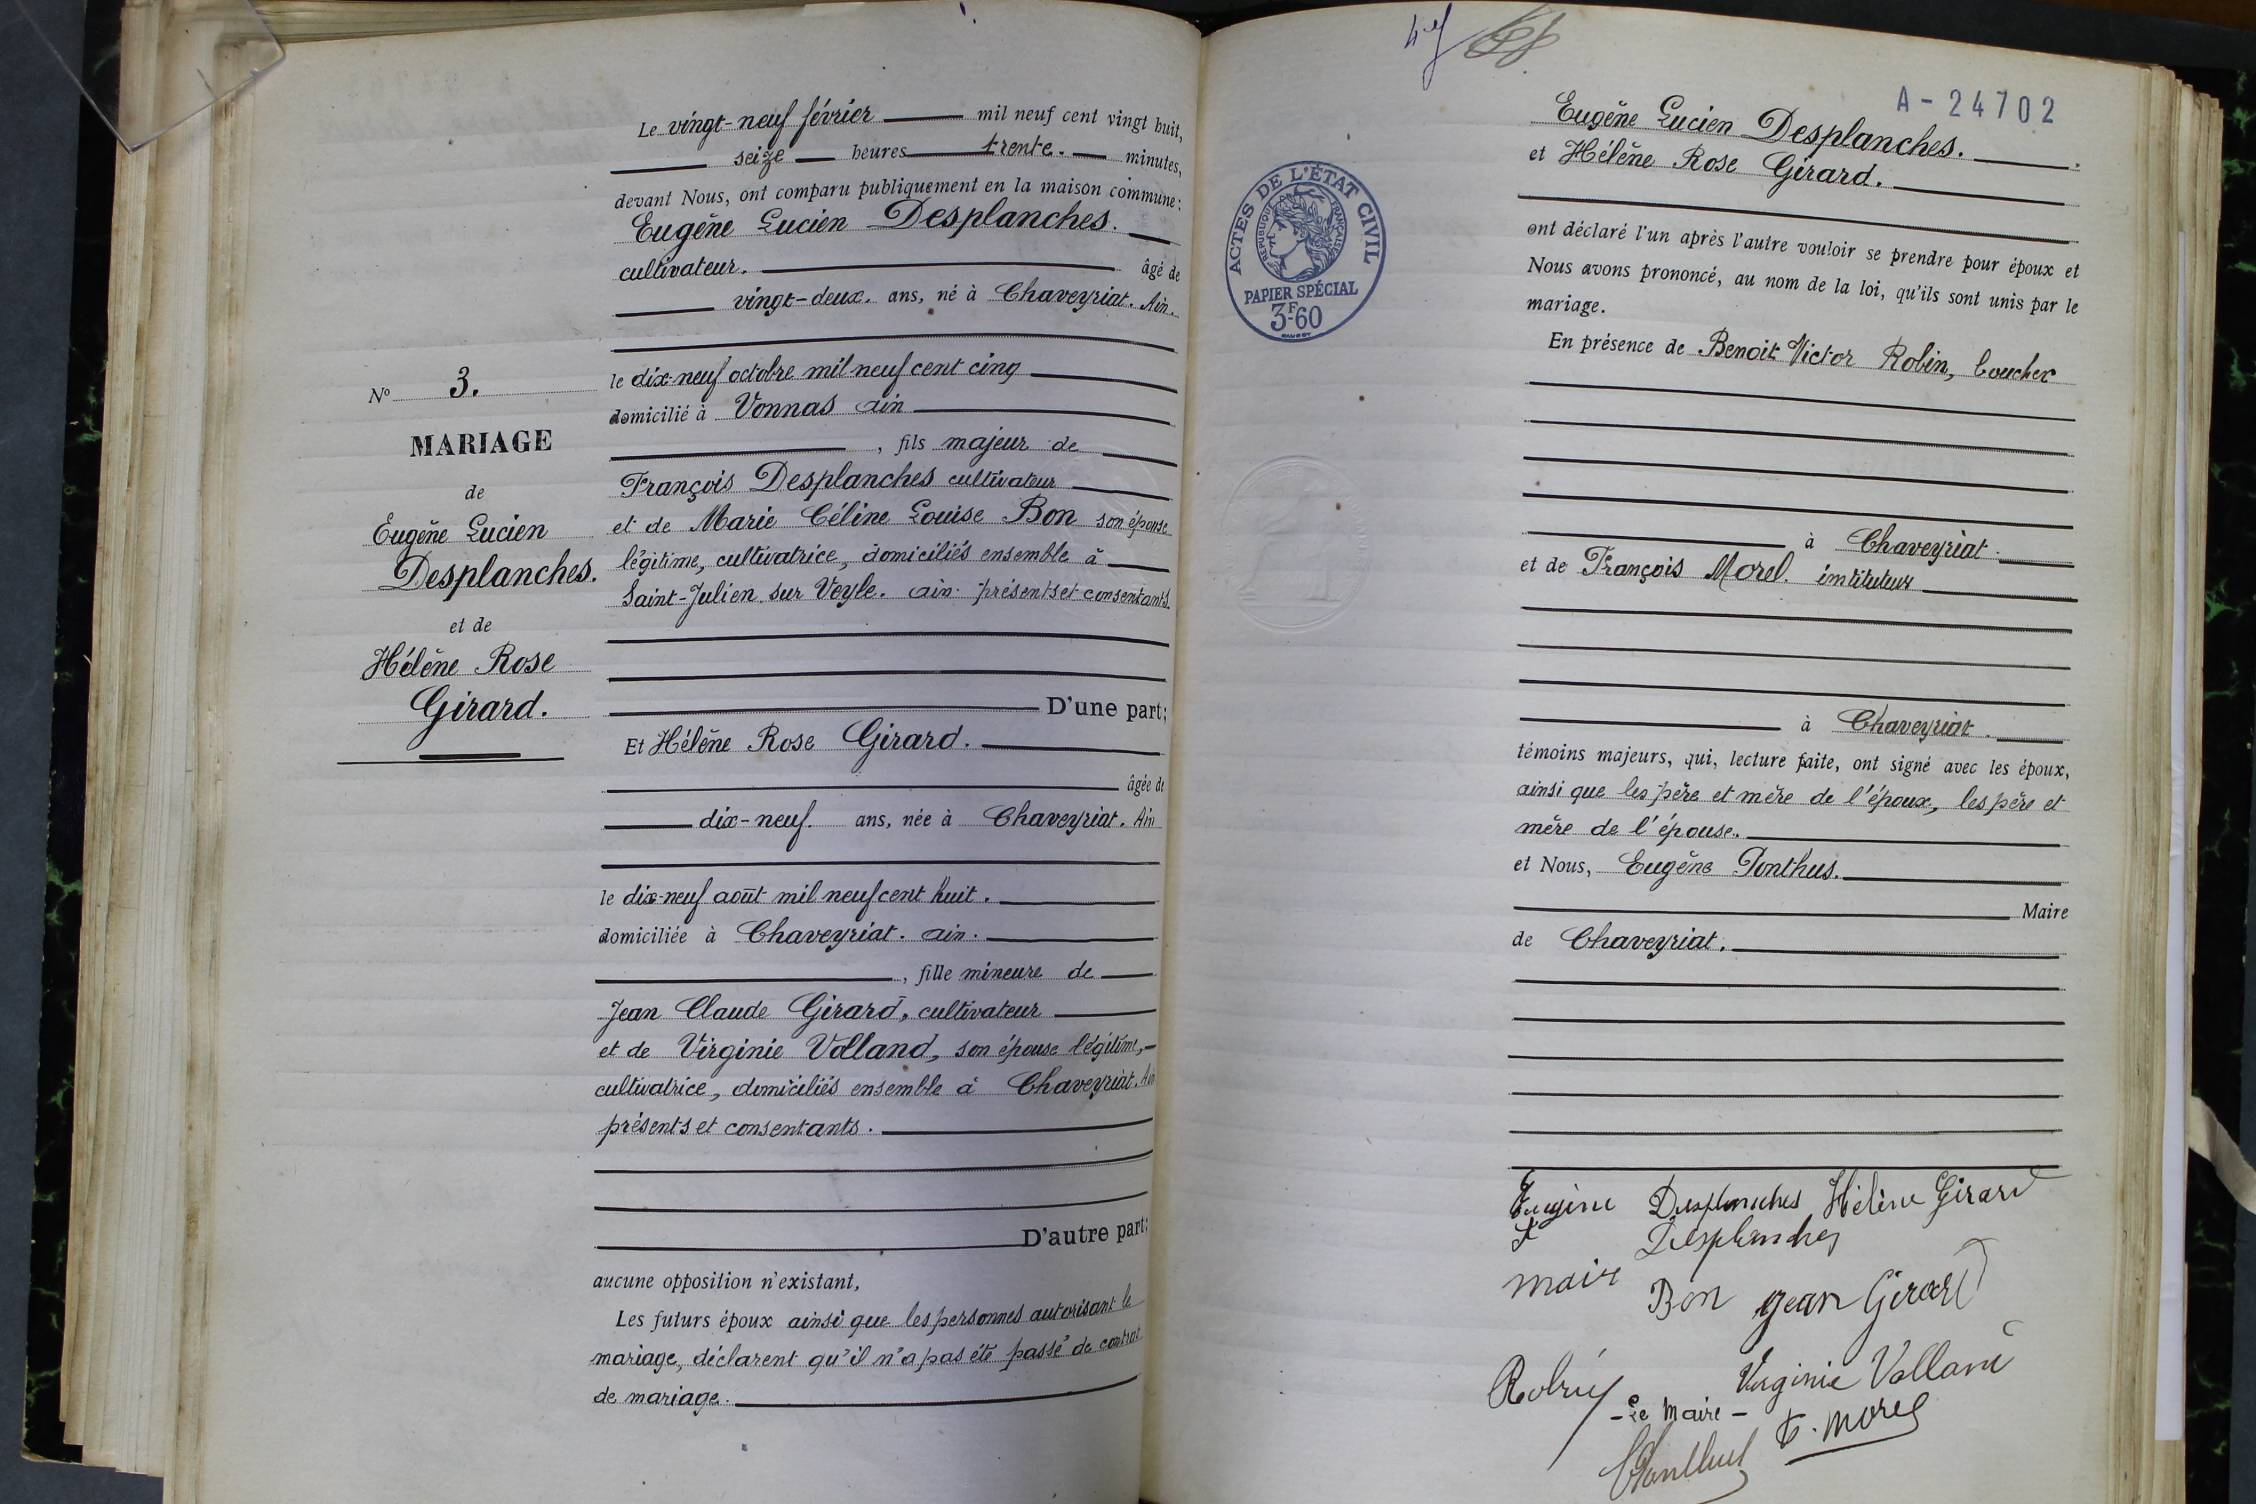 Le vingt-neuf février mil neuf cent vingt huit,
seize heures trente. minutes,
devant Nous, ont comparu publiquement en la maison commune:
Eugène Lucien Desplanches.
cultivateur. âgé de
vingt-deux. ans, né à Chaveyriat. Ain.
le dix-neuf octobre mil neuf cent cinq
domicilié à Vonnas ain
, fils majeur de
François Desplanches cultivateur
et de Marie Céline Louise Bon son épouse
légitime, cultivatrice, domiciliés ensemble à
Saint-Julien sur Veyle. ain. présents et consentants.
D'une part;
Et Hélène Rose Girard.
âgée de
dix-neuf. ans, née à Chaveyriat. Ain
le dix-neuf août mil neuf cent huit.
domiciliée à Chaveyriat. ain.
, fille mineure de
Jean Claude Girard, cultivateur
et de Virginie Volland, son épouse légitime,
cultivatrice, domiciliés ensemble à Chaveyriat. Ain
présents et consentants.
D'autre part:
aucune opposition n'existant,
Les futurs époux ainsi que les personnes autorisant le
mariage, déclarent qu'il n'a pas été passé de contrat
de mariage.
No 3.
MARIAGE
de
Eugène Lucien
Desplanches.
et de
Hélène Rose
Girard.
A-24702
Eugène Lucien Desplanches.
et Hélène Rose Girard.
ACTES DE L'ÉTAT CIVIL
RÉPUBLIQUE FRANÇAISE
PAPIER SPÉCIAL
3F-60
ont déclaré l'un après l'autre vouloir se prendre pour époux et
Nous avons prononcé, au nom de la loi, qu'ils sont unis par le
mariage.
En présence de Benoit Victor Robin, boucher
à Chaveyriat.
et de François Morel. instituteur
à Chaveyriat.
témoins majeurs, qui, lecture faite, ont signé avec les époux,
ainsi que les père et mère de l'époux, les père et
mère de l'épouse.
et Nous, Eugène Ponthus.
Maire
de Chaveyriat.
Eugène Desplanches Hélène Girard
Desplanches
Bon Jean Girard
Robin Virginie Volland
- Le Maire -
F. Morel
Ponthus